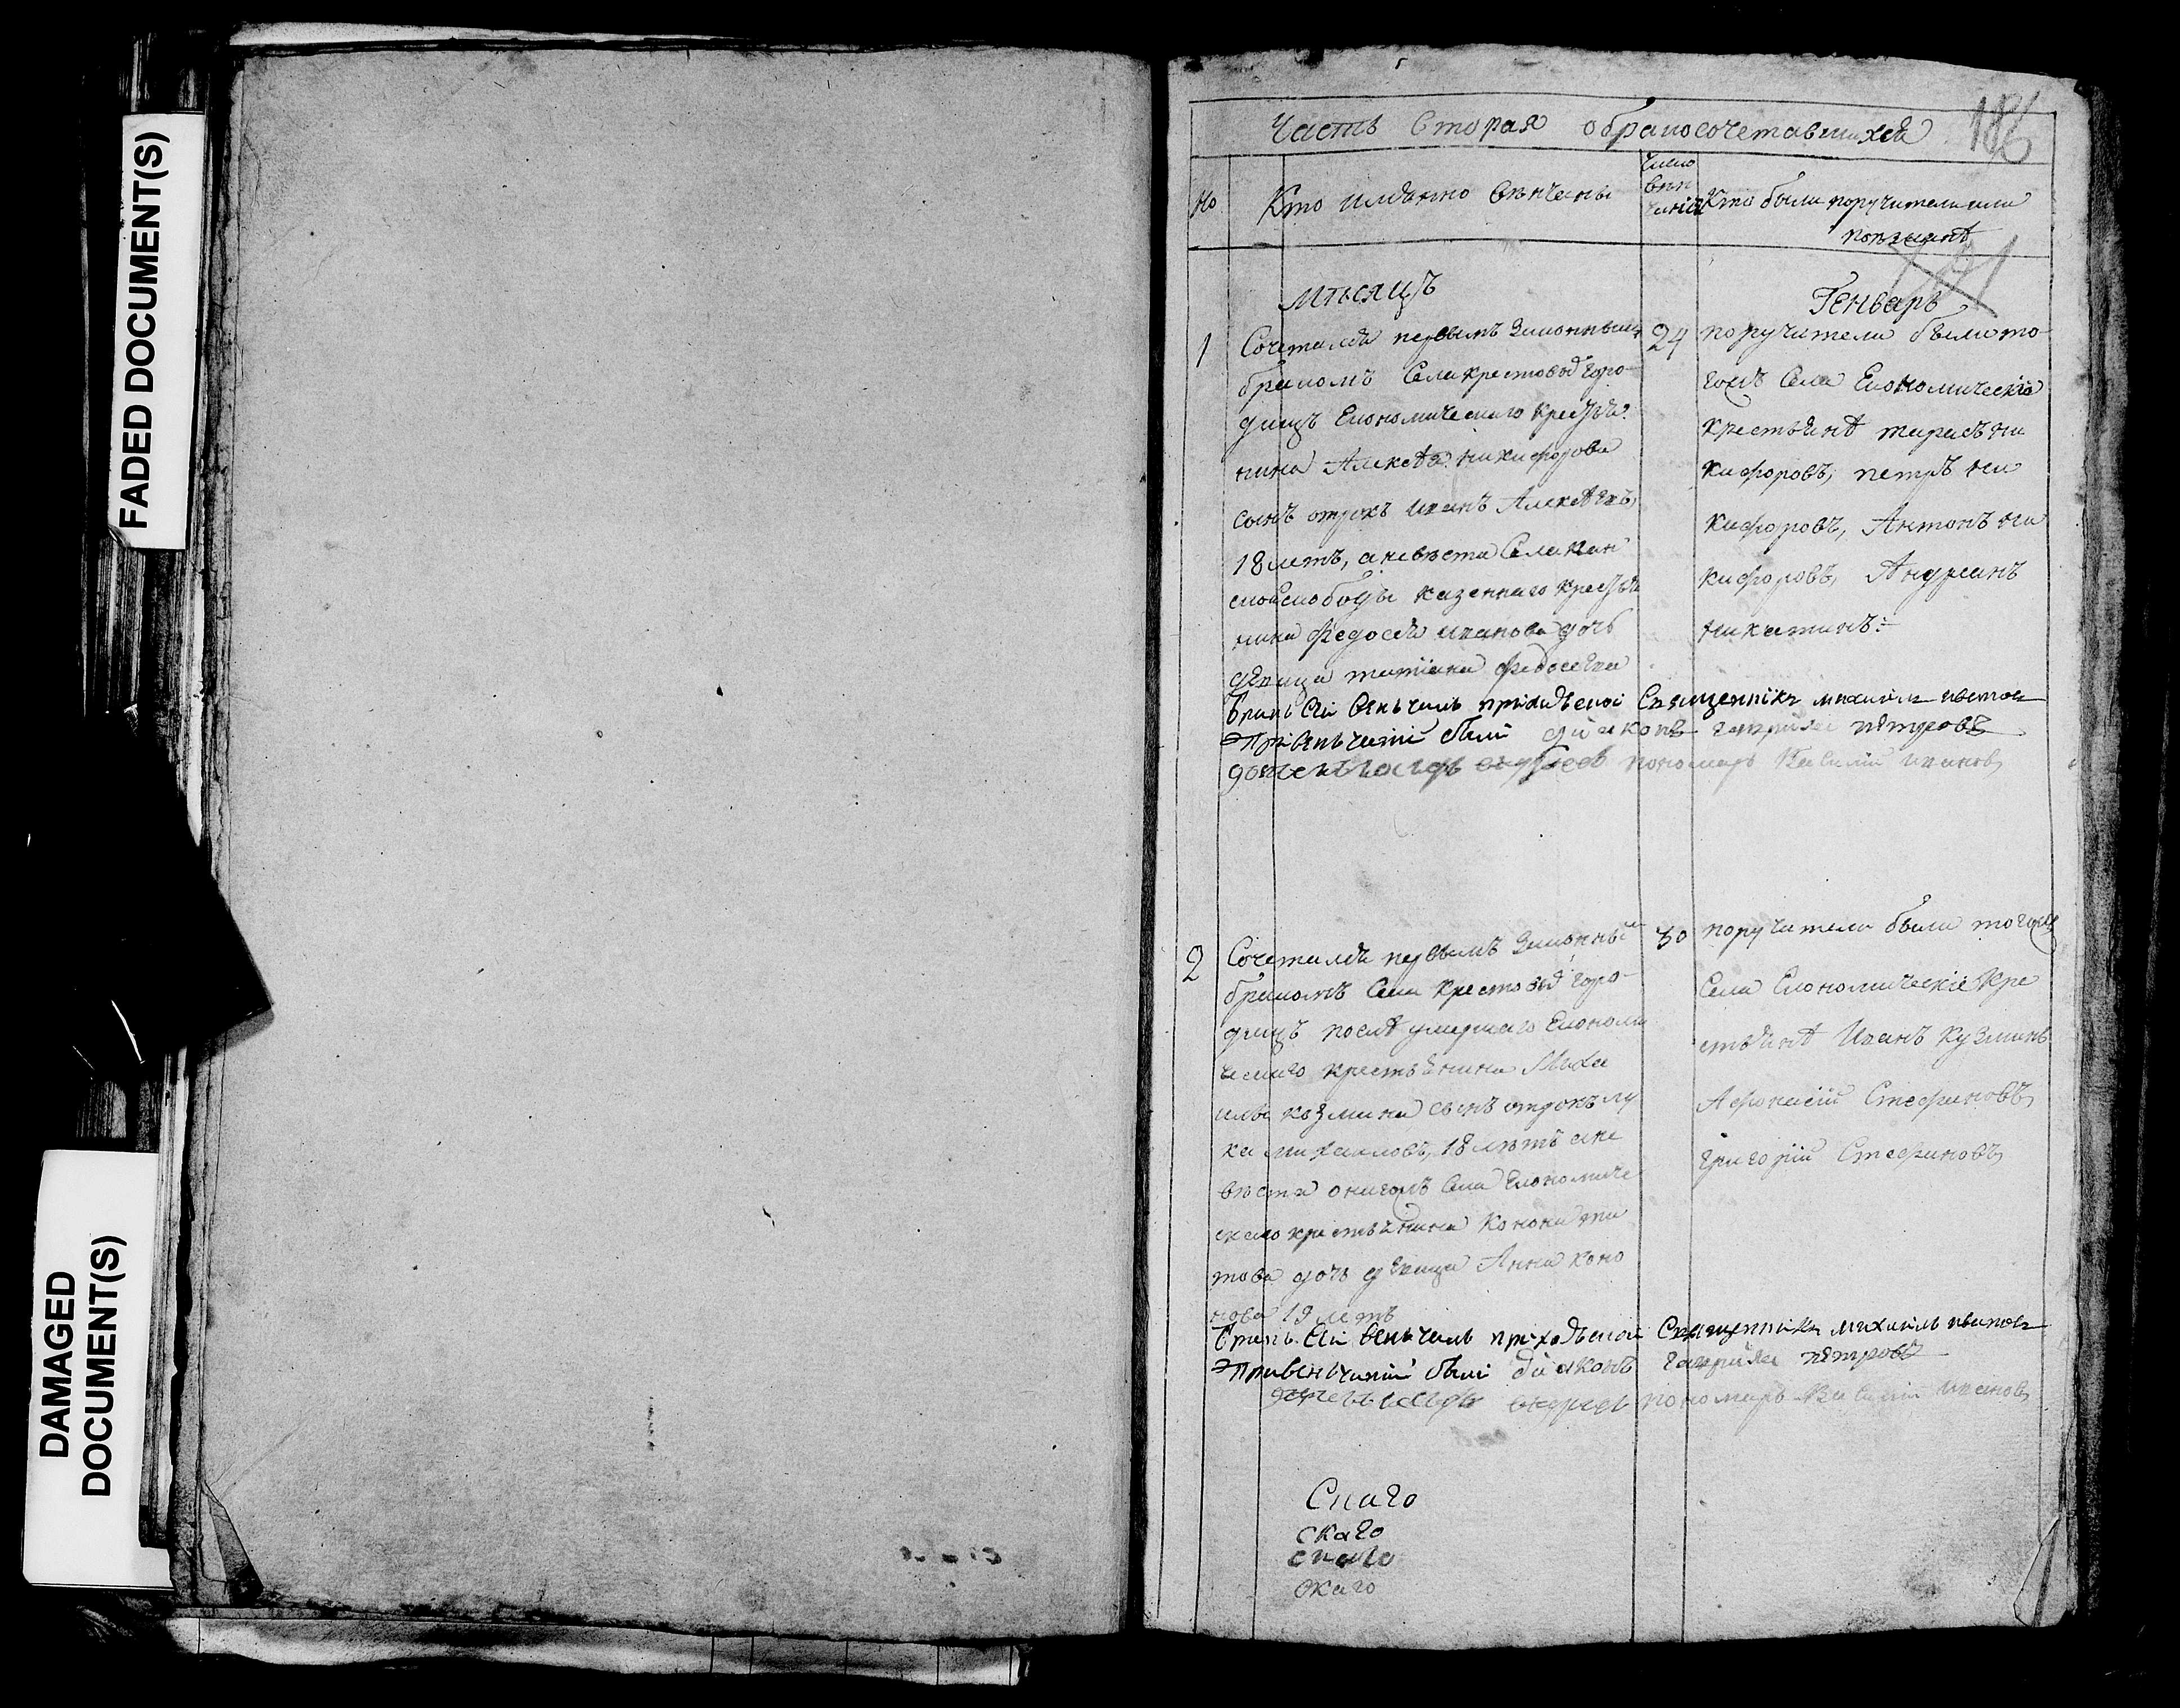 FADED DOCUMENT(S)
DAMAGED
DOCUMENT(S)
Часть вторая о бракосочетавшихся
186
No
Кто имянно венчаны
Число
вен
чания
Кто были поручители или
поезжанѣ
мѣсяцъ
Генварь
1
Сочетался первымъ законнымъ
бракомъ Села крестовыхъ горо-
дищъ Економическаго крестья-
нина Алексѣя никифорова
сынъ отрокъ иванъ Алексѣевъ
18 летъ, а невѣста Села кан
ской слободы казеннаго крестья
нина федосѣя иванова дочь
дѣвица татіана федосеева
24
поручители были то-
гожъ Села Економическіе
крестьянѣ тарасъ ни
кифоровъ, петръ ни
кифоровъ, Антонъ ни
кифоровъ, Андреанъ
никитинъ
бракъ сей венчалъ приходской Священникъ михаилъ ивановъ
При венчаніи были діаконъ гавріилъ пѣтровъ
пономарь Василій ивановъ
2
Сочетался первымъ законнымъ
бракомъ Села крестовыхъ горо-
дищъ послѣ умершаго Економи
ческаго крестьянина Миха
илы козмина сынъ отрокъ лу
ка михаиловъ, 18 лѣтъ а не
вѣста онагожъ Села Економиче
скаго крестьянина Конона ти
това дочь дѣвица Анна коно
нова 19 летъ
30
поручители были тогожъ
Села Економическіе кре
стьянѣ Иванъ Кузминъ
Афонасій Стефановъ
григорій Стефановъ
бракъ сей венчалъ приходской Священникъ михаилъ ивановъ
При венчаніи были діаконъ гавріилъ пѣтровъ
пономарь Василій ивановъ
Скаго
скаго
скаго
скаго